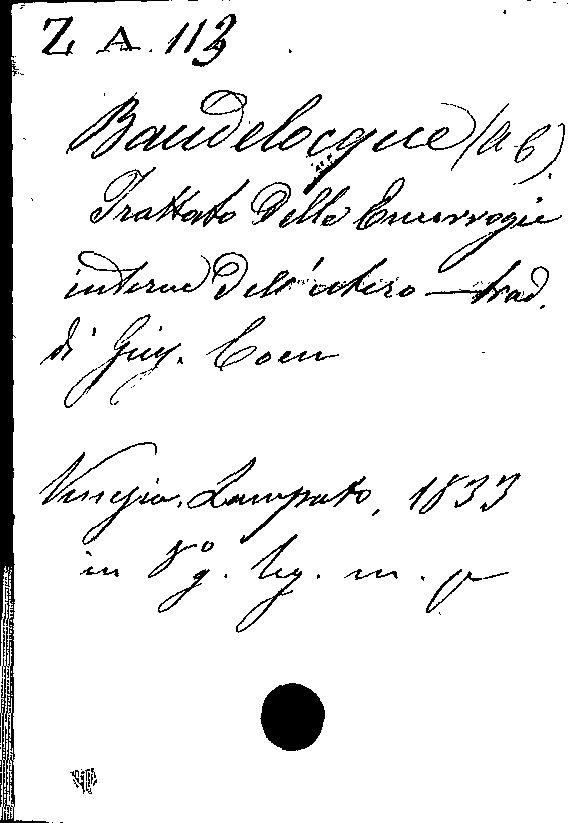 Z A. 113
Baudelocque (A C)
Trattato delle Emorragie
interne dell'utero - trad.
di Gius. Coen
Venezia, Lampato, 1833
in 8º g. leg. m. p